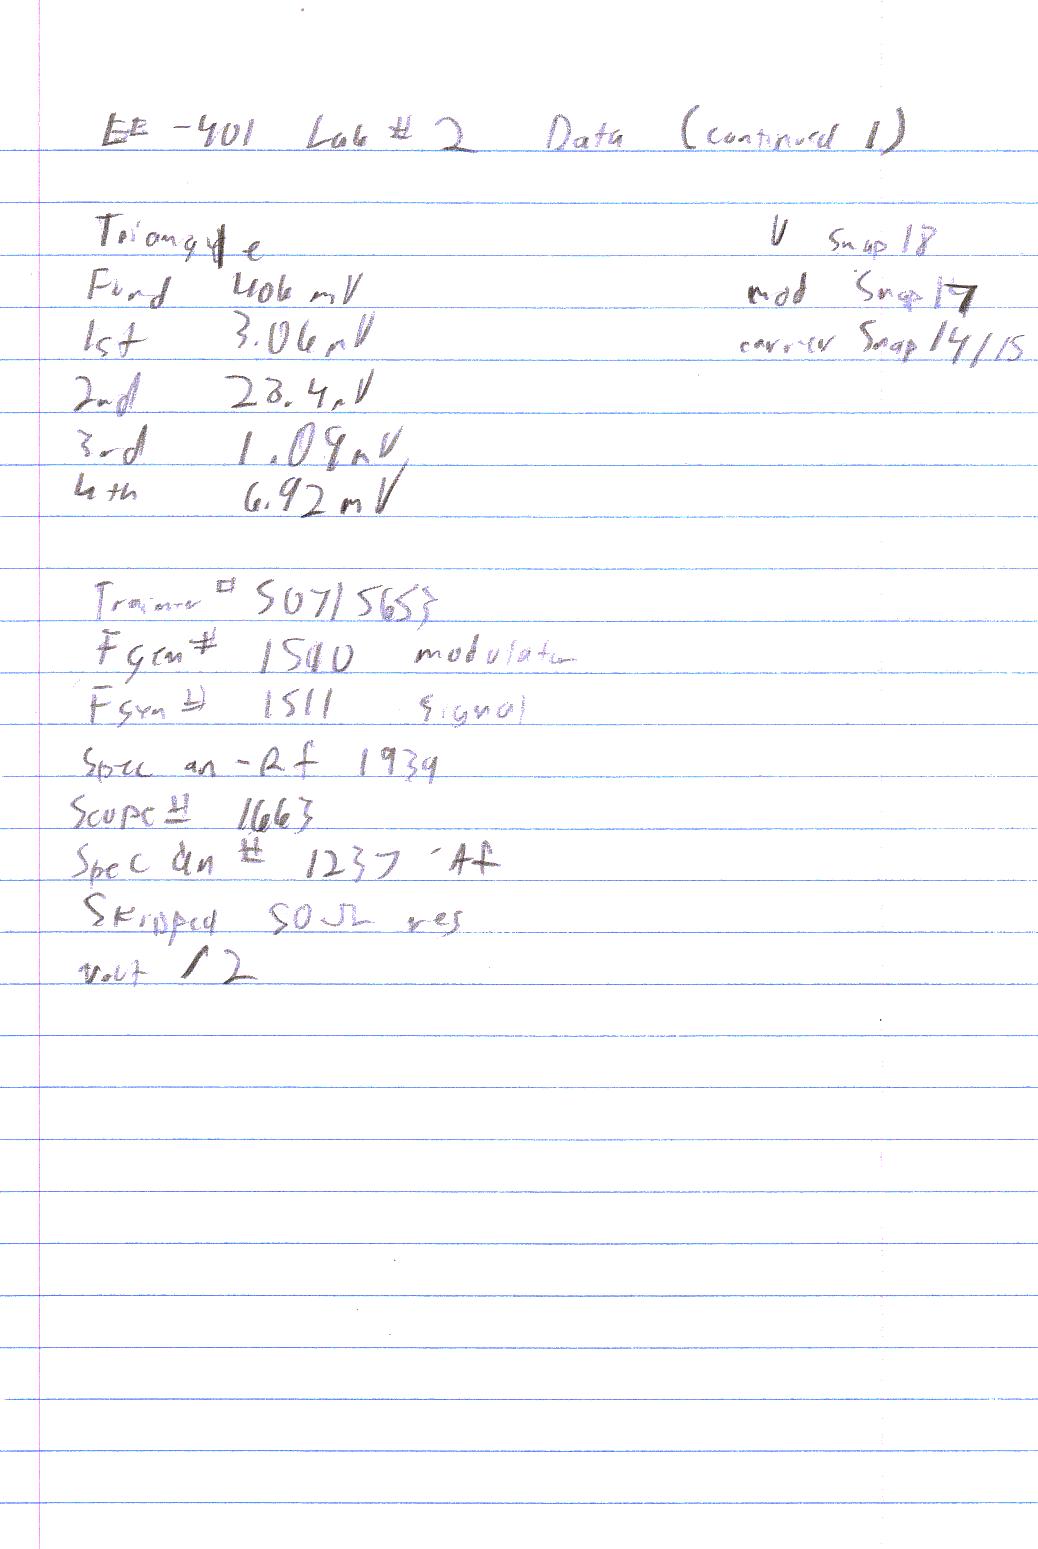 EE-401 Lab # 2 Data (continued 1)
Triangle V Snap 18
Fund 406 mV mod Snap 17
1st 3.06 mV carrier Snap 14/15
2nd 23.4 mV
3rd 1.09 mV
4th 6.92 mV
Trainer # 50715653
Fgen # 1510 modulator
Fgen # 1511 signal
Spec an -Rf 1939
Scope # 1663
Spec an # 1237 -Af
Skipped 50Ω res
Vout / 2